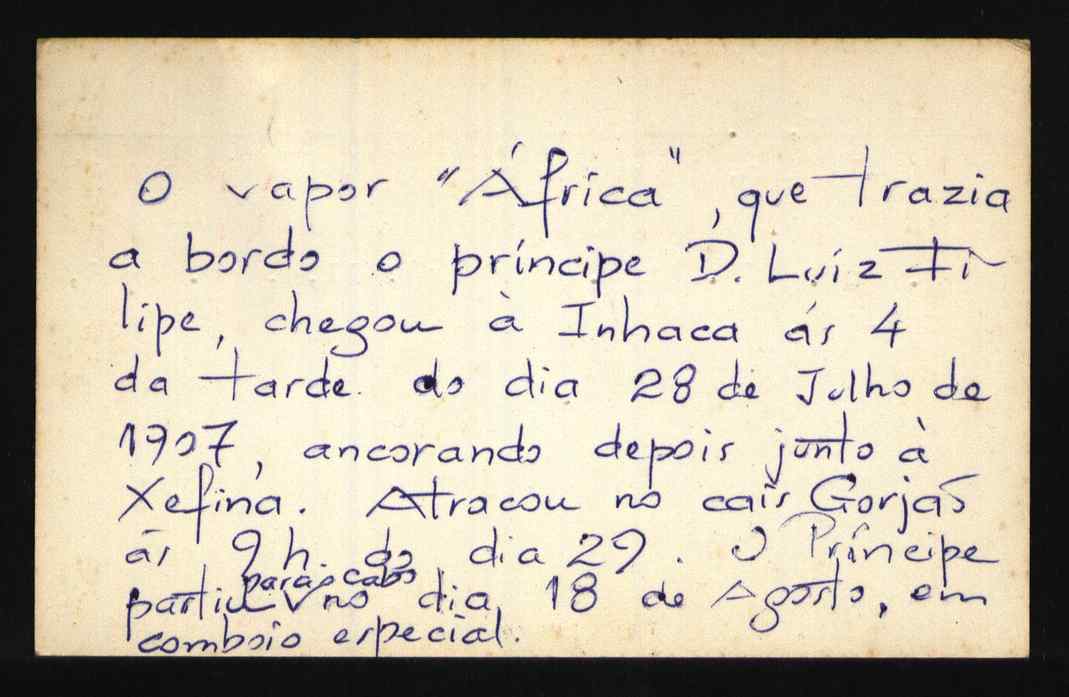 O vapor "África", que trazia
a bordo o príncipe D. Luíz Fi-
lipe, chegou à Inhaca ás 4
da tarde do dia 28 de Julho de
1907, ancorando depois junto à
Xefina. Atracou no cais Gorjão
ás 9 h. do dia 29. O Príncipe
para o cabo
partiu no dia 18 de Agosto, em
comboio especial.